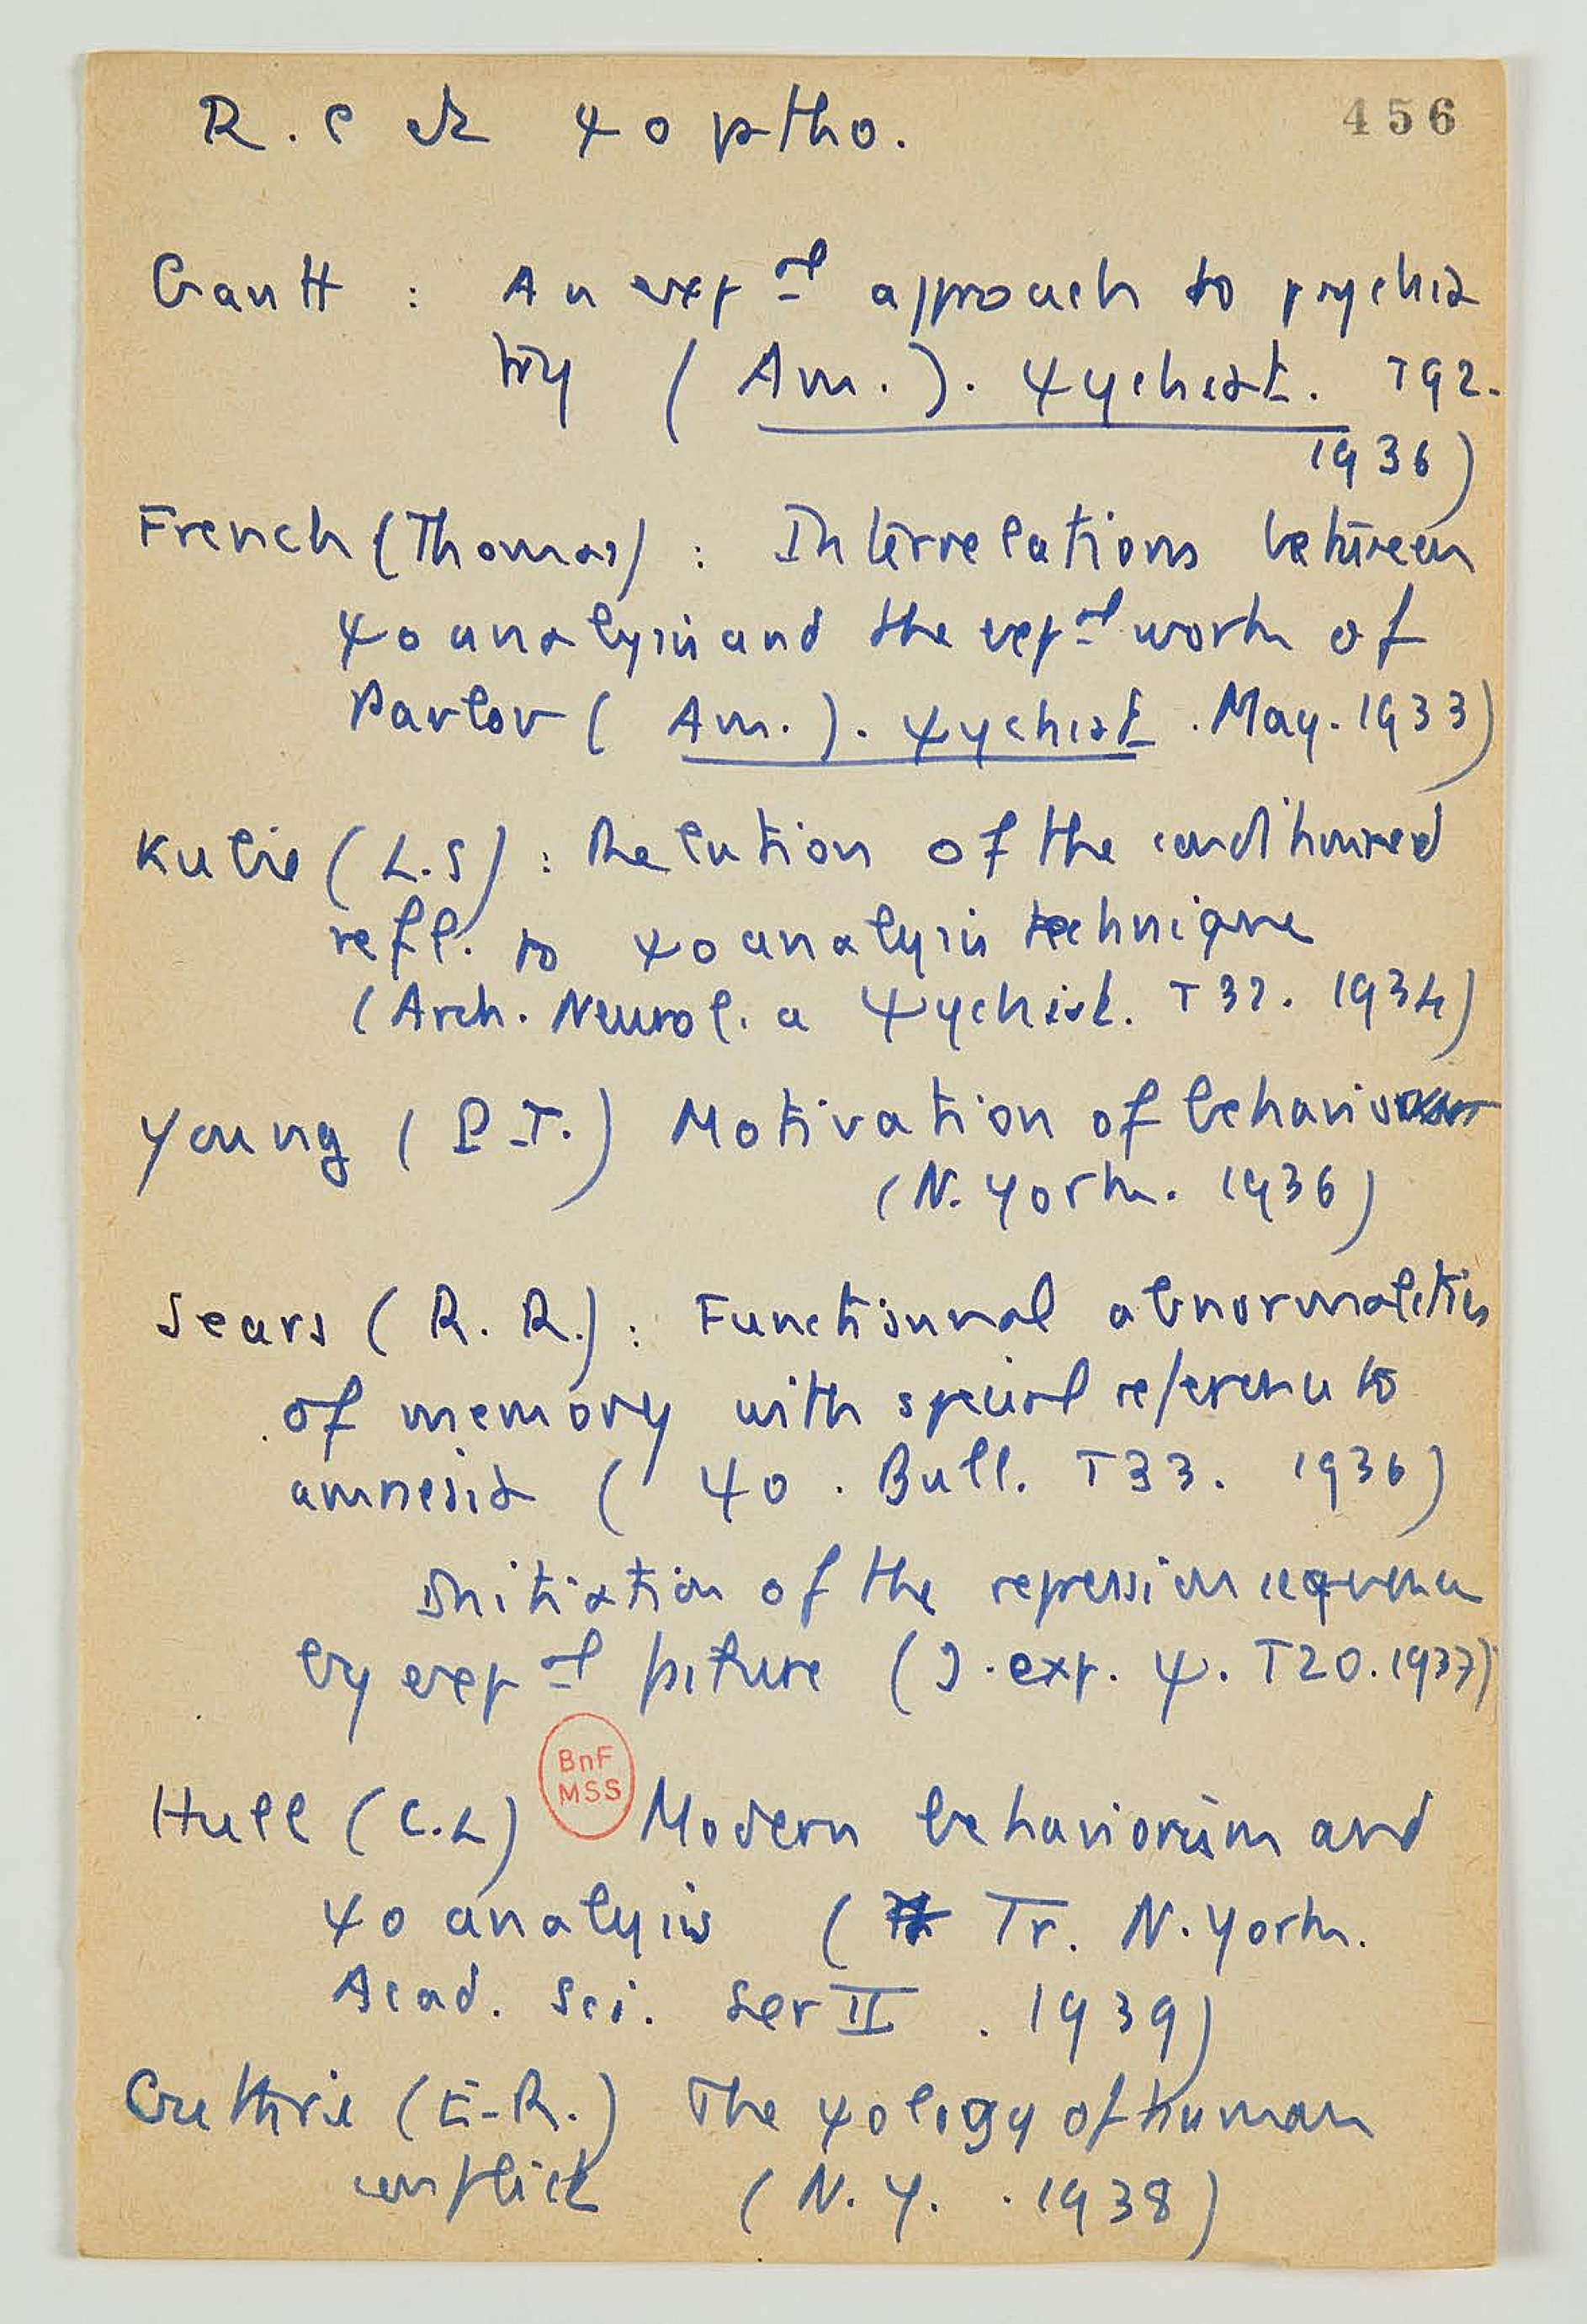 R. C et ψo ptho.
456
Gantt : An exp al approach to psychia
try (Am. J. ψychiat. T92.
1936)
French (Thomas) : Interrelations between
ψoanalysis and the exp al work of
Pavlov (Am. J. ψychiat. May. 1933)
Kubie (L.S) : Relation of the conditioned
refl. to ψoanalysis technique
(Arch. Neurol. a ψychiat. T32. 1934)
Young (P.T.) Motivation of behavior
(N. York. 1936)
Sears (R. R.) : Functionnal abnormalities
of memory with special reference to
amnesia (ψo. Bull. T33. 1936)
Initiation of the repression sequence
by exp al (J. exp. ψ. T20. 1937)
BnF
MSS
Hull (C.L) Modern behaviorism and
ψoanalysis (Tr. N. York.
Acad. Sci. Ser II . 1939)
Guthrie (E-R.) The ψology of human
conflict (N. Y. . 1938)